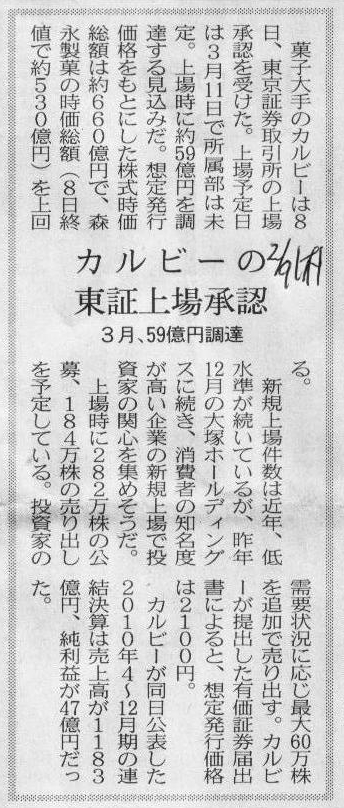 カルビーの
東証上場承認
３月、59億円調達
2/9
　菓子大手のカルビーは８
日、東京証券取引所の上場
承認を受けた。上場予定日
は３月11日で所属部は未
定。上場時に約59億円を調
達する見込みだ。想定発行
価格をもとにした株式時価
総額は約６６０億円で、森
永製菓の時価総額（８日終
値で約５３０億円）を上回
る。
　新規上場件数は近年、低
水準が続いているが、昨年
12月の大塚ホールディング
スに続き、消費者の知名度
が高い企業の新規上場で投
資家の関心を集めそうだ。
　上場時に２８２万株の公
募、１８４万株の売り出し
を予定している。投資家の
需要状況に応じ最大60万株
を追加で売り出す。カルビ
ーが提出した有価証券届出
書によると、想定発行価格
は２１００円。
　カルビーが同日公表した
２０１０年４〜12月期の連
結決算は売上高が１１８３
億円、純利益が47億円だっ
た。